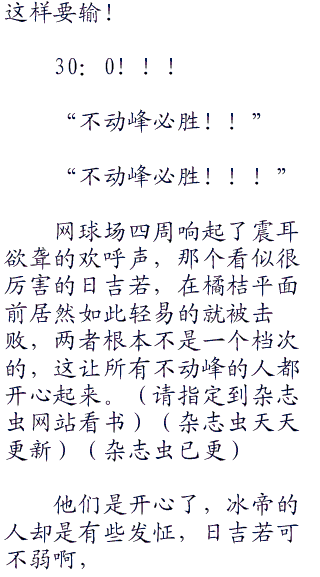 这样要输！
30：0！！！
“不动峰必胜！！”
“不动峰必胜！！！”
网球场四周响起了震耳
欲聋的欢呼声，那个看似很
厉害的日吉若，在橘桔平面
前居然如此轻易的就被击
败，两者根本不是一个档次
的，这让所有不动峰的人都
开心起来。（请指定到杂志
虫网站看书）（杂志虫天天
更新）（杂志虫已更）
他们是开心了，冰帝的
人却是有些发怔，日吉若可
不弱啊，